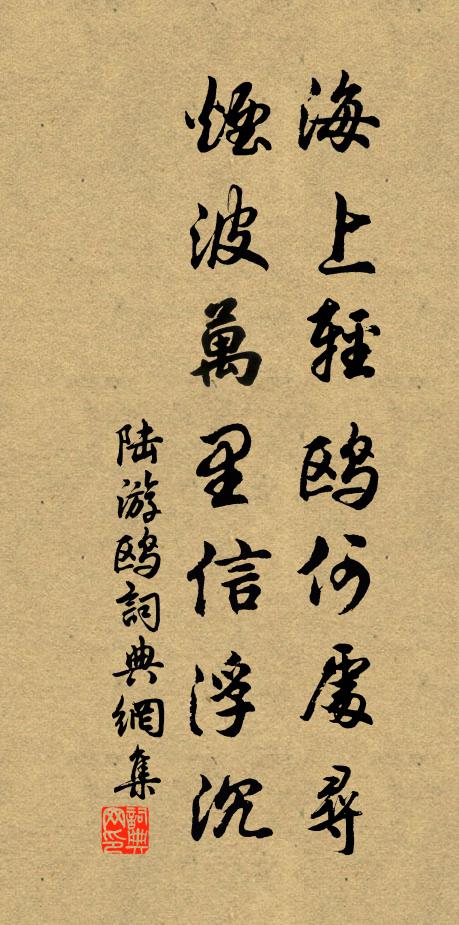 海上輕鷗何處尋
煙波萬里信浮沉
陆游鷗詞典網集
詞典網印